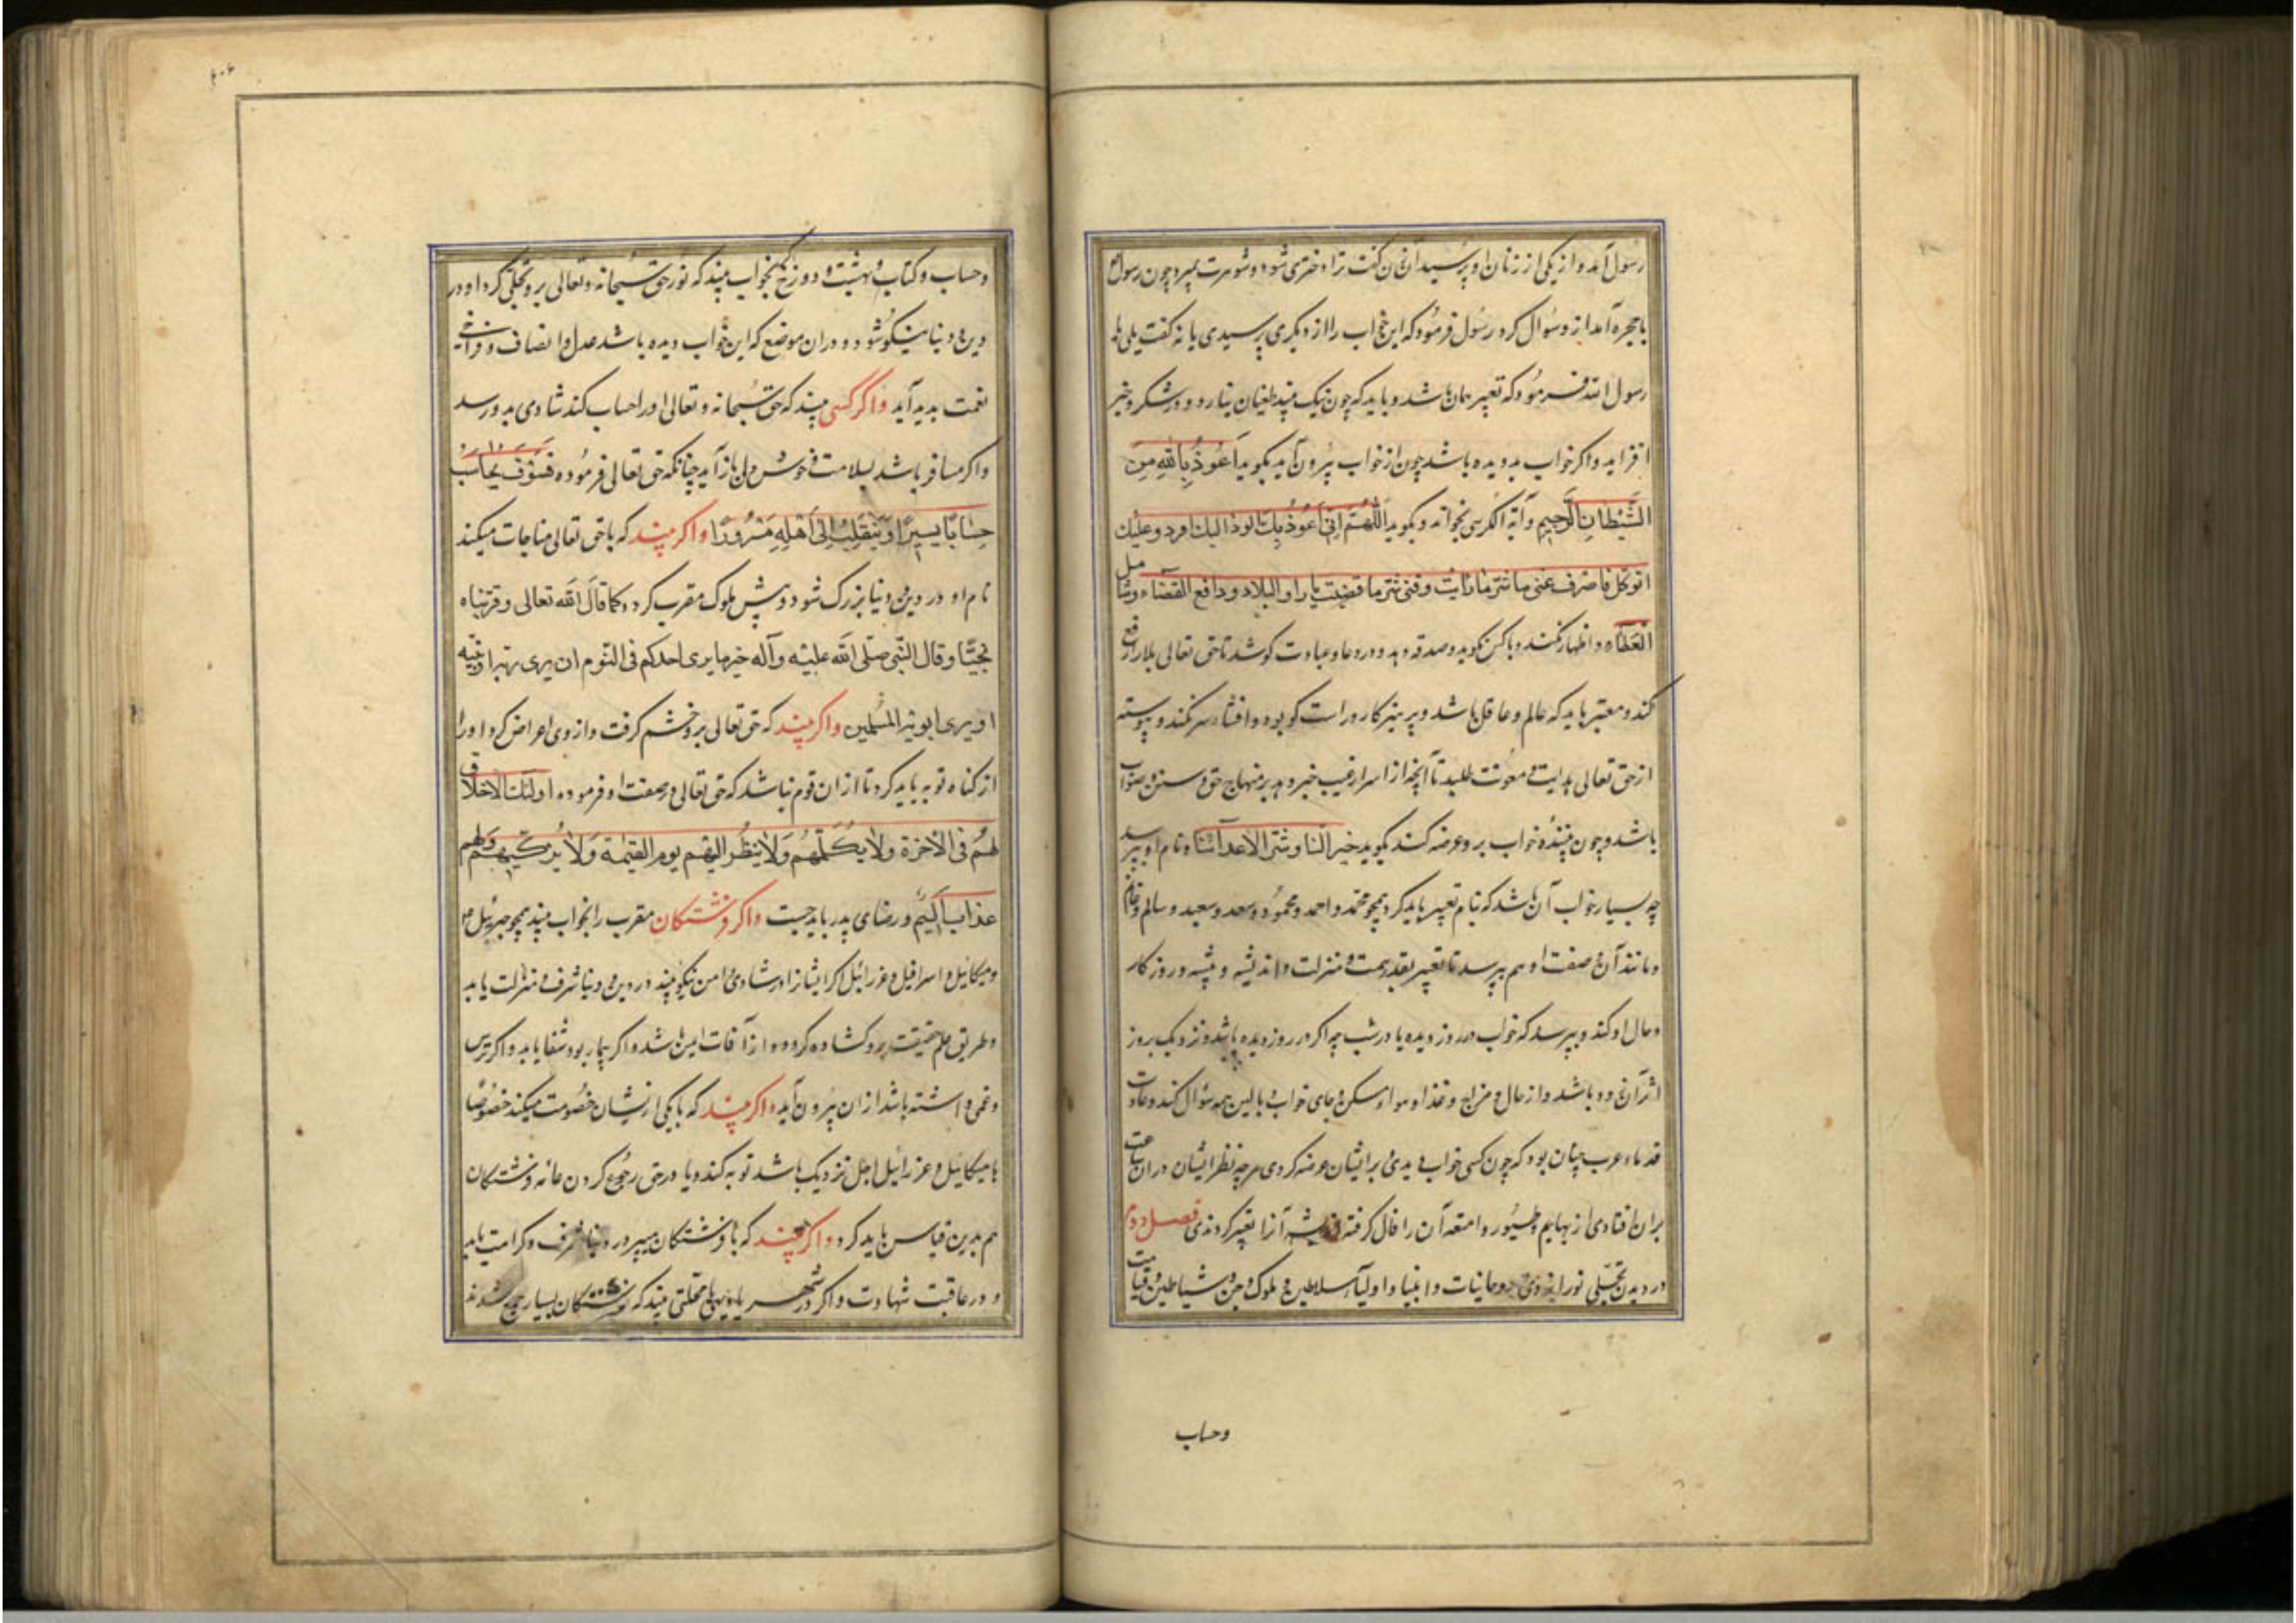 رسول آمد و از یکی از زنان او پرسید آن زن گفت ترا دختری شود و شوهرت بمیرد چون رسول
با حجره آمد از و سؤال کرد رسول فرمود که این خواب را از دیگری پرسیدی یا نه گفت بلی یا
رسول الله فرمود که تعبیر همان باشد و باید که چون نیک بیند طغیان نیارد و در شکر و خیر
افزاید و اگر خواب بد دیده باشد چون از خواب بیرون آید بگوید اَعُوذُ بِاللهِ مِنَ
الشَّیْطانِ الرَّجیمِ و آیة الکرسی بخواند و بگوید اَللّهُمَّ اِنّی اَعُوذُ بِکَ الوذ الیک افرد و علیک
اتوکل فاصرف عنی ما شر ما رایت و قنی شر ما قضیت یا راد البلاد و دافع القضاء و شامل
العَطاء و اظهار نکند و با کس نگوید و صدقه دهد و در دعا و عبادت کوشد تا حق تعالی بلا را دفع
کند و معبّر باید که عالم و عاقل باشد و پرهیزکار و راست گو بود و افشاء سر نکند و پیوسته
از حق تعالی هدایت و معونت طلبد تا آنچه از اسرار غیب خبر دهد بر منهاج حق و سنن صواب
باشد و چون بیننده خواب بر و عرضه کند بگوید خیر النا و شر الاعدائنا و نام او بپرسد
چه بسیار خواب آن باشد که بنام تعبیر باید کرد همچو محمد و احمد و محمود و سعد و سعید و سالم و غانم
و مانند آن و صفت او هم بپرسد تا تعبیر بقدر همت و منزلت و اندیشه و پیشه و روزکار
و حال او کند و بپرسد که خواب در روز دیده یا در شب چه اگر در روز دیده باشد نزدیک بروز
اثر آن زود باشد و از حال و مزاج و غذا و هوا و مسکن و جای خواب و بالین همه سؤال کند و عادت
قدماء عرب چنان بود که چون کسی خوابی دیدی و بر ایشان عرضه کردی هر چه نظر ایشان در آن ساعت
بر آن افتادی از بهایم و طیور و امتعه آن را فال کرفته آنرا تعبیر کردندی فصل دوم
در دیدن تجلی نور ایزدی و روحانیات و انبیا و اولیا و سلاطین و ملوک و جن و شیاطین و قیامت
وحساب
۴۰۶
و حساب و کتاب و بهشت و دوزخ بخواب بیند که نور حق سبحانه و تعالی بر و تجلی کرد او در
دین و دنیا نیکو شود و در آن موضع که این خواب دیده باشد عدل و انصاف و فراخی
نعمت بدید آید و اگر کسی بیند که حق سبحانه و تعالی او را حساب کند شادی بدو رسد
و اگر مسافر باشد بسلامت و خوش دلی باز آید چنانکه حق تعالی فرموده فَسَوْفَ یُحاسَبُ
حِسَابًا یَسیرًا وَ یَنْقَلِبُ اِلی اَهْلِهِ مَسْرُورًا و اگر بیند که با حق تعالی مناجات میکند
نام او در دین و دنیا بزرگ شود و پیش ملوک مقرب گردد کما قال الله تعالی و قربناه
نجیّا و قال النبی صلی الله علیه و آله خیر ما یری احدکم فی النوم ان یری ربه او نبیه
او یری ابویه المسلمین و اگر بیند که حق تعالی بر و خشم گرفت و از وی اعراض کرد او را
از گناه توبه باید کرد تا از آن قوم نباشد که حق تعالی در صفت او فرموده اولئک لاخلاق
لهم فی الآخرة ولا یکلّمهم ولا ینظر الیهم یوم القیمة ولا یزکّیهم ولهم
عذاب الیم و رضای پدر باید جست و اگر فرشتکان مقرب را بخواب بیند همچو جبرئیل
و میکائیل و اسرافیل و عزرائیل اگر ایشانرا در شادی و امن نیکو بیند در دین و دنیا شرف و منزلت یابد
و طریق علم حقیقت بر و گشاده گردد و از آفات ایمن باشد و اگر بیمار بود شفا یابد و اگر ترس
و غمی داشته باشد از آن بیرون آید و اگر بیند که با یکی از ایشان خصومت میکند خصوصًا
با میکائیل و عزرائیل اجل نزدیک باشد توبه کند و یا در حق رجوع کردن خانه فرشتکان
هم بدین قیاس باید کرد و اگر بیند که با فرشتکان میپرد در دنیا شرف و کرامت یابد
و در عاقبت شهادت و اگر در شهر یا دیهی یا محلتی بیند که فرشتکان بسیار جمع شدند